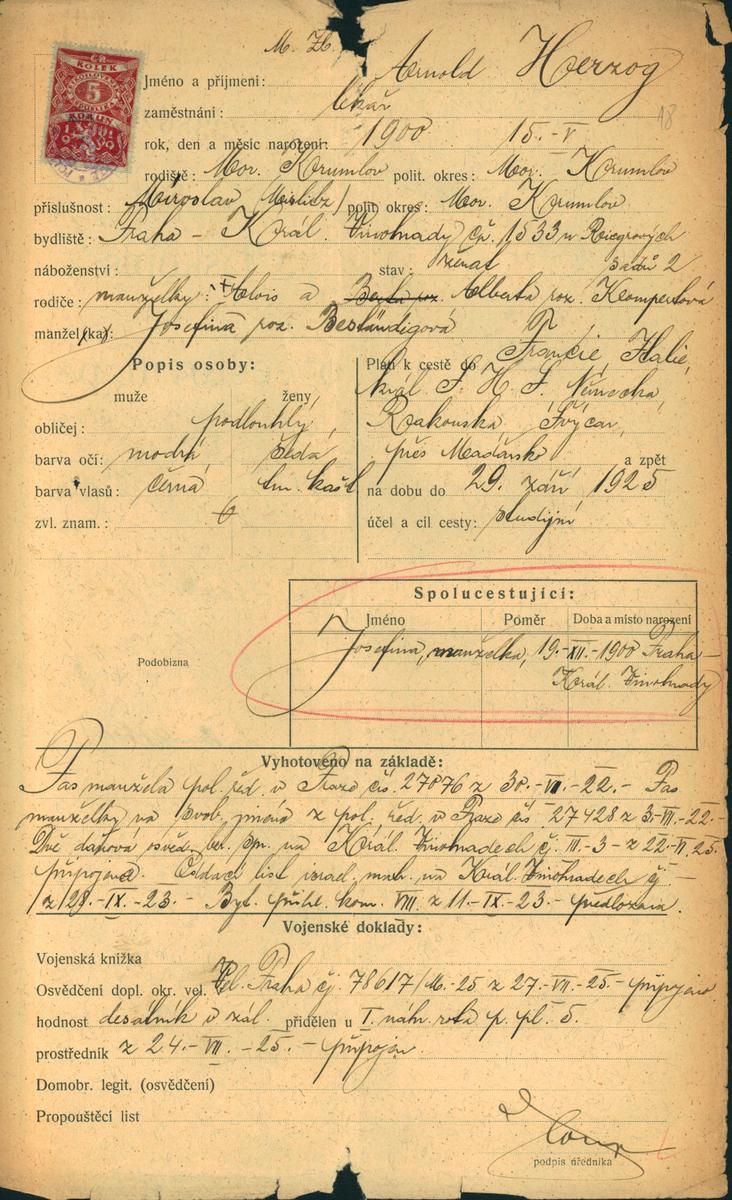 M. Zl.
ČR
KOLEK
5
KORUN
Jméno a přijmení: Arnold Herzog
18
zaměstnání: lékař
rok, den a měsíc narození: 1900 15.-V
rodiště: Mor. Krumlov polit. okres: Mor. Krumlov
příslušnost: Miroslav (Mislitz) polit okres: Mor. Krumlov
bydliště: Praha - Král. Vinohrady čp. 1533 u Riegrových
sadů 2
náboženství: stav: ženat
rodiče: manželky: Alois a Berta roz. Alberta roz. Klompertová
manžel(ka): Josefina roz. Beständigová
Popis osoby:
muže ženy
obličej: podlouhlý
barva očí: modrá, šedá
barva vlasů: černá tm. kašt.
zvl. znam.: 0
Plán k cestě do Francie, Italie,
král. S. H. S. Německa,
Rakouska Švýcar,
přes Maďarsko a zpět
na dobu do 29. září 1925
účel a cíl cesty: studijní
Spolucestující:
Jméno Poměr Doba a místo narození
Josefina, manželka, 19.-XII.-1900 Praha-
Král. Vinohrady
Podobizna
Vyhotoveno na základě:
Pas manžela pol. řed. v Praze čís. 27876 z 30.-VI.-22.- Pas
manželky na svob. jméno z pol. řed. v Praze čís 27428 z 3.-VII.-22.-
Dvě daňová osvěd. ber. spr. na Král. Vinohradech č. III.-3- z 22.-V. 25.
připojena. Oddací list israel. mat. na Král. Vinohradech čj. -
z 28.-IX.-23.- Byt. přihl. kom. VIII. z 11.-IX.-23.- předložena.
Vojenské doklady:
Vojenská knížka
Osvědčení dopl. okr. vel. Vel. Praha čj. 78617/M.-25 z 27.-VII.-25.- připojeno
hodnost desátník v zál. přidělen u I. náhr. rota p. pl. 5.
prostředník z 24.-VII.-25.- připojen.
Domobr. legit. (osvědčení)
Propouštěcí list
podpis úředníka